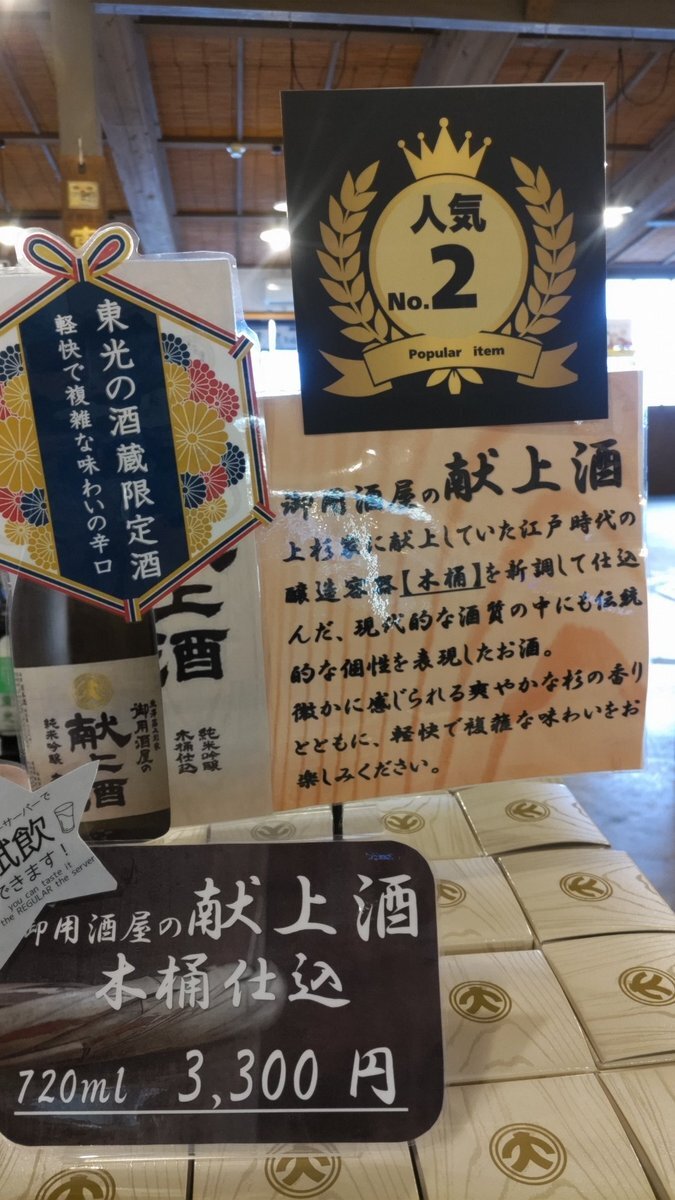 人気
No.2
Popular item
東光の酒蔵限定酒
軽快で複雑な味わいの辛口
御用酒屋の献上酒
上杉家に献上していた江戸時代の
醸造容器【木桶】を新調して仕込
んだ、現代的な酒質の中にも伝統
的な個性を表現したお酒。
微かに感じられる爽やかな杉の香り
とともに、軽快で複雑な味わいをお
楽しみください。
上酒
純米吟醸
木桶仕込
御用酒屋の
献上酒
純米吟醸
サーバーで
試飲
できます!
you can taste it
the REGULAR the server
御用酒屋の献上酒
木桶仕込
720ml 3,300円